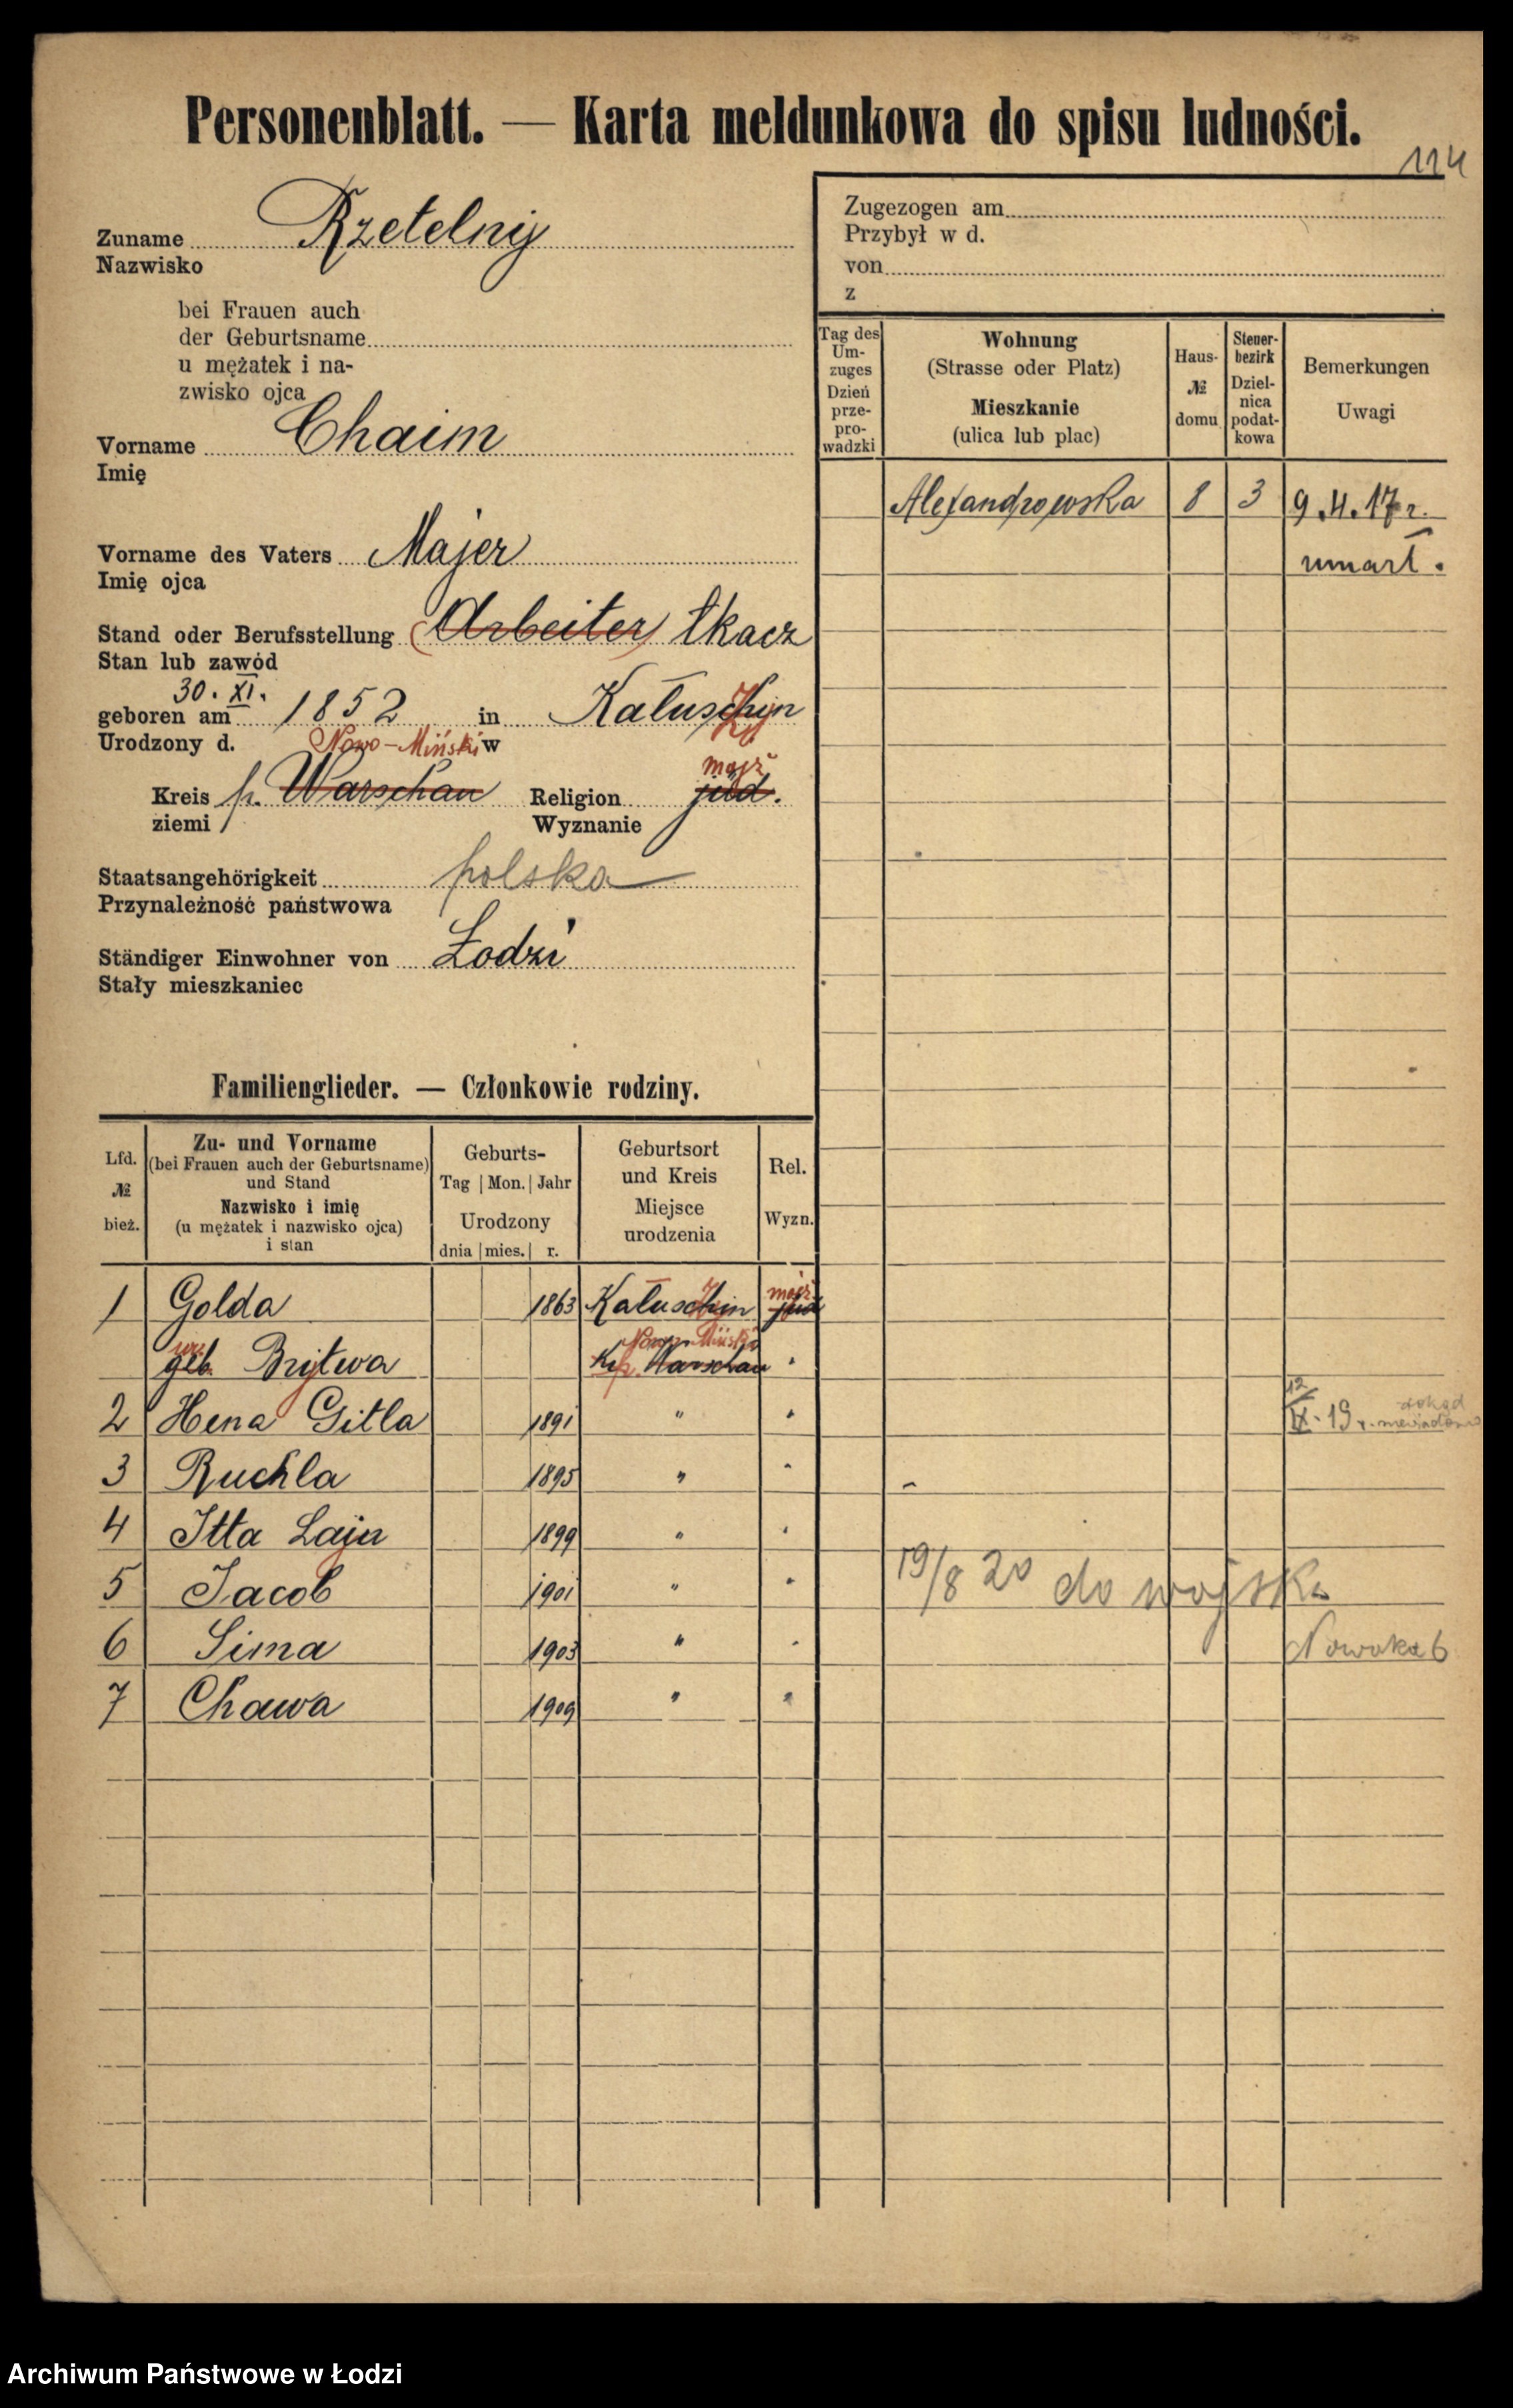 Personenblatt. — Karta meldunkowa do spisu ludności.
114
Zuname Rzetelny
Nazwisko
bei Frauen auch
der Geburtsname
u mężatek i na-
zwisko ojca
Vorname Chaim
Imię
Vorname des Vaters Majer
Imię ojca
Stand oder Berufsstellung Arbeiter tkacz
Stan lub zawód
30. XI.
geboren am 1852 in Kałuschyn
Urodzony d. Nowo-Miński w
Kreis Warschau Religion jüd.
ziemi Wyznanie
mojż
Staatsangehörigkeit polska
Przynależność państwowa
Ständiger Einwohner von Łodzi
Stały mieszkaniec
Zugezogen am
Przybył w d.
von
z
Tag des Um-zuges
Dzień prze-pro-wadzki
Wohnung
(Strasse oder Platz)
Mieszkanie
(ulica lub plac)
Haus-
№
domu
Steuer-bezirk
Dziel-nica podat-kowa
Bemerkungen
Uwagi
Alexandrowska 8 3 9.4.17 r.
umarł.
Familienglieder. — Członkowie rodziny.
Lfd.
№
bież.
Zu- und Vorname
(bei Frauen auch der Geburtsname)
und Stand
Nazwisko i imię
(u mężatek i nazwisko ojca)
i stan
Geburts-
Tag | Mon. | Jahr
Urodzony
dnia | mies. | r.
Geburtsort
und Kreis
Miejsce
urodzenia
Rel.
Wyzn.
1 Golda 1863 Kałuschin jüd
mojż
Nowo-Miński
geb. Brytwa Warschau "
2 Hena Gitla 1891 " "
12/IX. 19 r. dokąd niewiadomo
3 Ruchla 1895 " "
4 Itta Laja 1899 " "
5 Jacob 1901 " " 19/8 20 do wojska
6 Sima 1903 " "
7 Chawa 1909 " "
Archiwum Państwowe w Łodzi